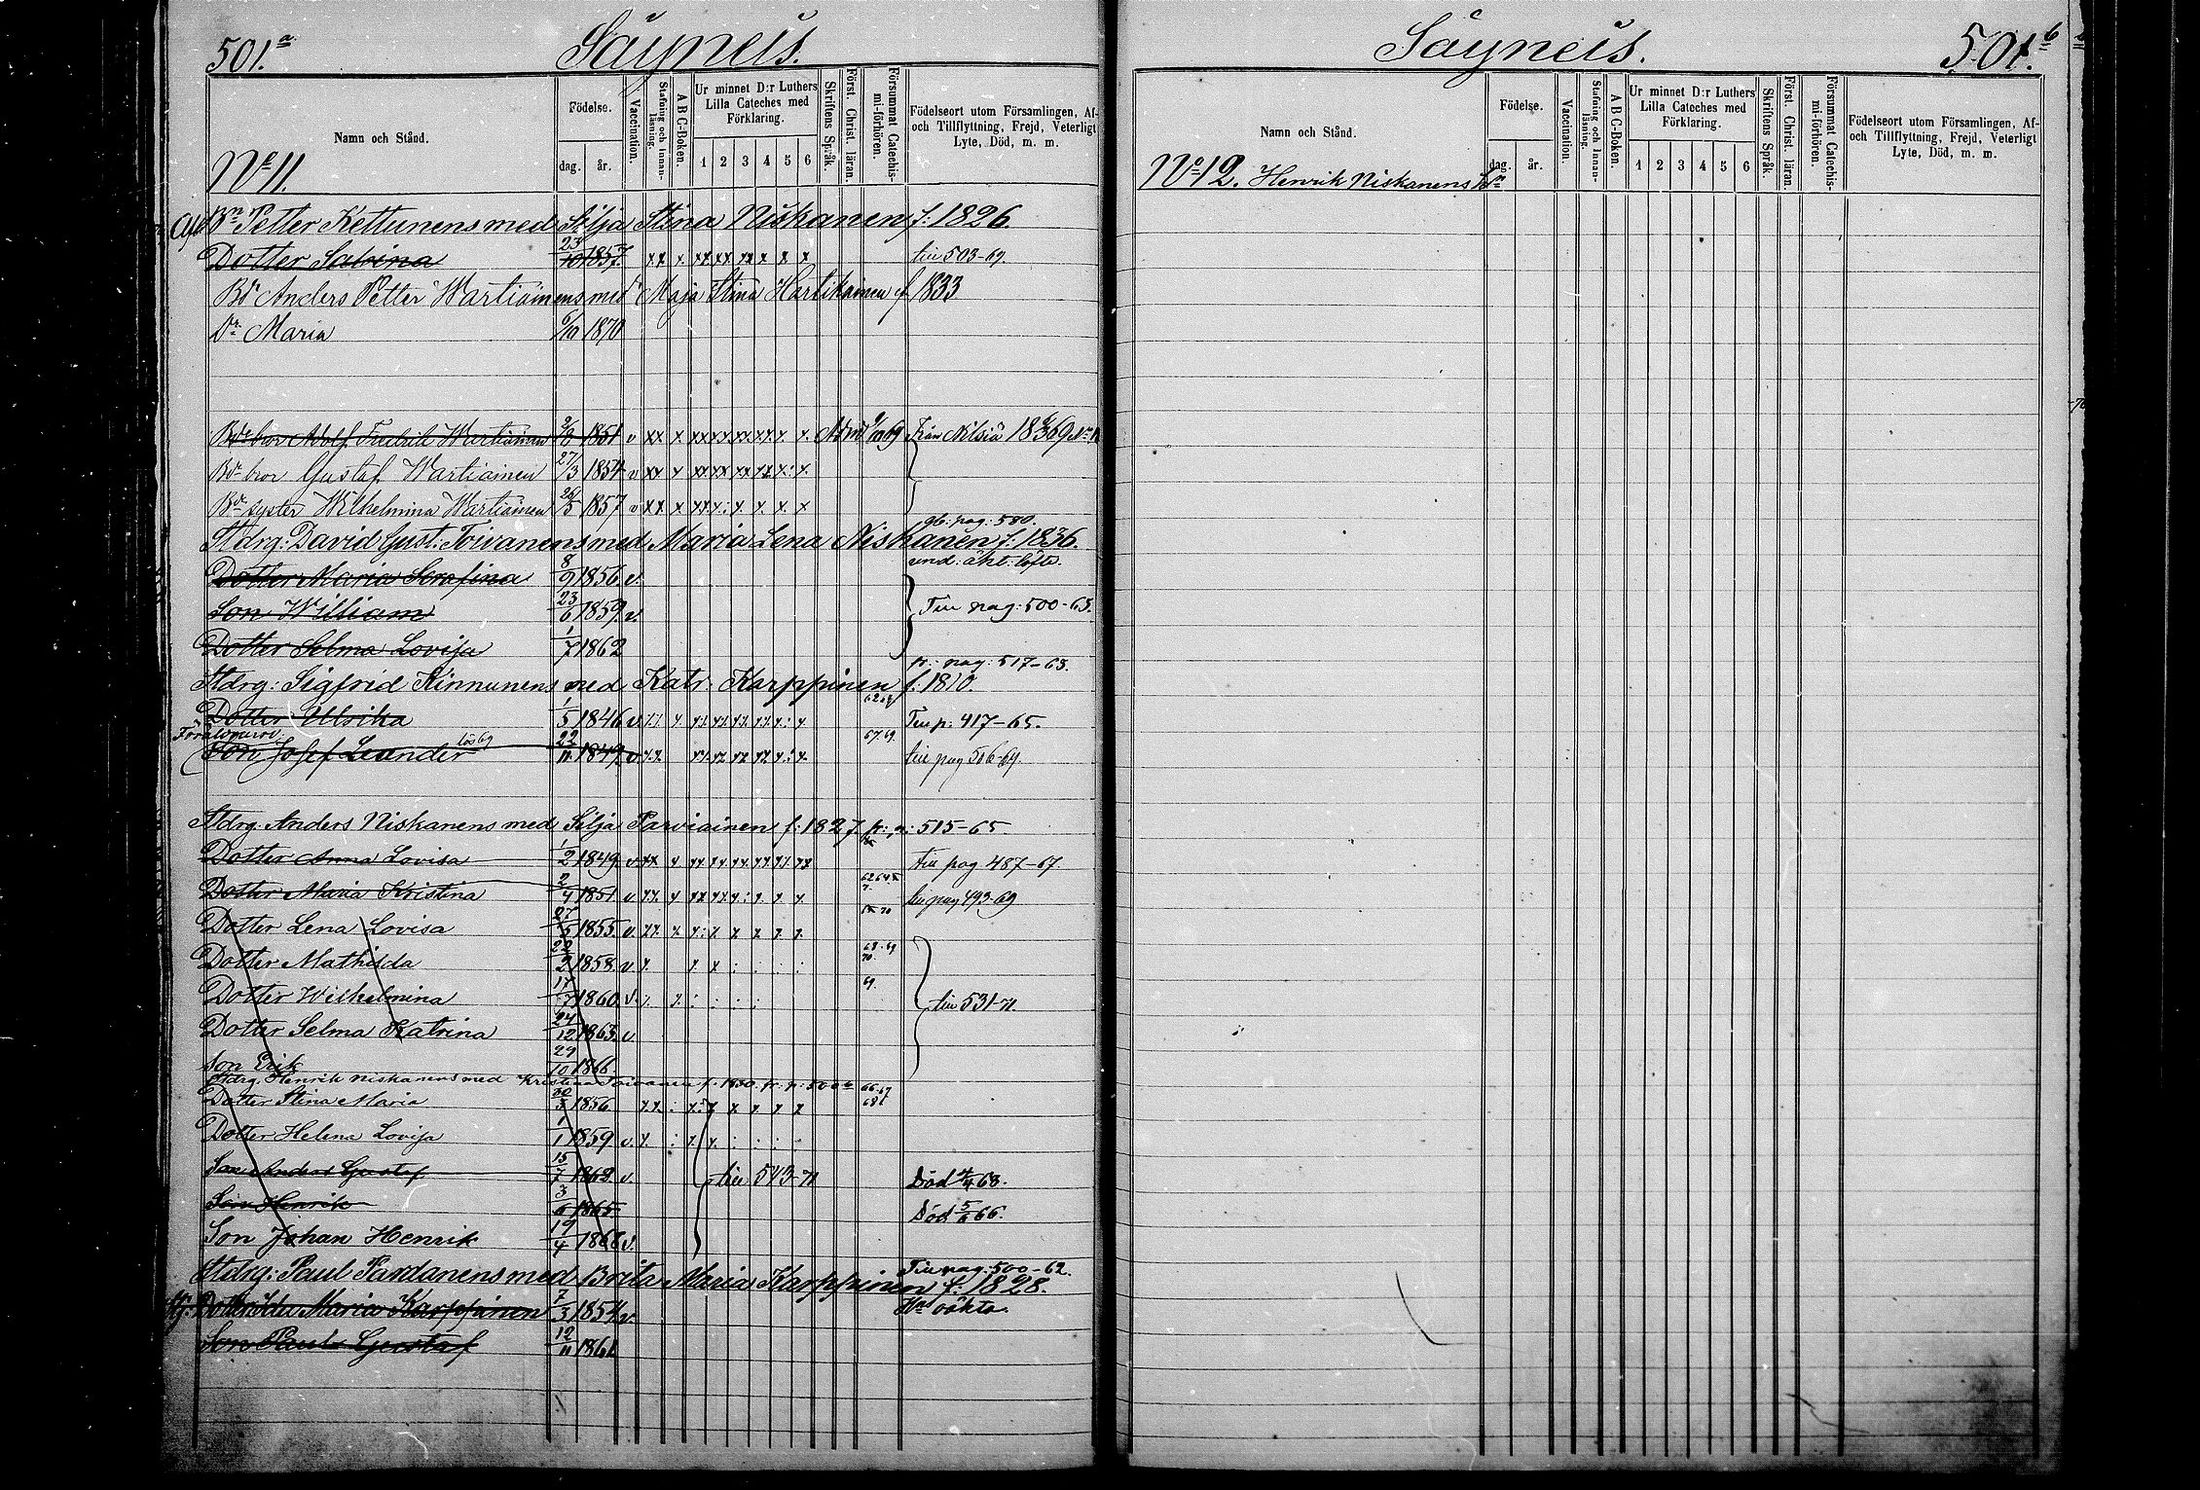 501.a
Säyneis.
Namn och Stånd.
Födelse.
dag.
år.
Vaccination.
Stafning och Innanläsning.
A B C-Boken.
Ur minnet D:r Luthers Lilla Cateches med Förklaring.
1 2 3 4 5 6
Skriftens Språk.
Först. Christ. läran.
Försummat Catechismi-förhören.
Födelseort utom Församlingen, Af-
och Tillflyttning, Frejd, Veterligt
Lyte, Död, m. m.
No 11.
Bn Petter Kettunens med Silja Stina Niskanen f: 1826.
Dotter Sabina 23/10 1857. xx x. xx xx xx x x x till 503-69.
Bd Anders Petter Wartiainens med Maja Stina Hartikainen f 1833
Dr Maria 6/10 1870
Bdr bror Adolf Fredrik Wartiainen 1851 v xx x xx xx xx xx x x. Från Nilsiä 1869 No
Bdr bror Gustaf Wartiainen 27/3 1854 v xx x xx xx xx xx x: x.
Bdr syster Wilhelmina Wartiainen 1857 v xx x xx x: x x x. x
gb: pag: 580.
Stdrg: David Gust. Toivanens med Maria Lena Niskanen f: 1836.
und: äkt: löfte.
Dotter Maria Serafina 8/9 1856. v.
Son William 23/6 1859. v. Till pag: 500-63.
Dotter Selma Lovisa 1/7 1862
fr: pag: 517-63.
Stdrg: Sigfrid Kinnunens med Katr. Karppinen f. 1810.
Dotter Ulrika 1/5 1846 v. xx x xx xx xx xx x: x Till p: 417-65.
67.69.
Son Josef Leander lös 69 22/11 1849. v xx. xx. xx xx xx x: x. till pag 506-69.
Stdrg. Anders Niskanens med Silja Parviainen f: 1827. fr: p: 515-65
Dotter Anna Lovisa 1/2 1849. v xx x xx xx xx xx xx xx till pag 487-67.
Dotter Maria Kristina 2/4 1851 v xx x xx xx x: x x x till pag 493-69
Dotter Lena Lovisa 27/5 1855. v. xx x x: x x x x x.
68.69
70
Dotter Mathilda 22/2 1858 v x. x x : : : :
69.
Dotter Wilhelmina 17/7 1860. v. x. x. : : : : till 531-71.
Dotter Selma Katrina 24/12 1863. v
Son Erik 29/10 1866
Stdrg. Henrik Niskanens med Kristina Toivanen f. 1830. fr. p: 500 66.67
68
Dotter Stina Maria 30/3 1856 xx : x: x x x x x
Dotter Helena Lovisa 1/1 1859 v. x. : x x. : : :
Son Anders Gustaf 15/7 1862 v. till 543-71 Död 4/4 68.
Son Henrik 3/6 1865 Död 5/6 66.
Son Johan Henrik 19/4 1868 v.
Till pag: 500-62.
Stdrg: Paul Pardanens med Brita Maria Karppinen f: 1828.
Dotter Ida Maria Karppinen 7/3 1854 v. oäkta.
Son Paul Gustaf 12/11 1861
Säyneis.
501.b
Namn och Stånd.
Födelse.
dag.
år.
Vaccination.
Stafning och Innanläsning.
A B C-Boken.
Ur minnet D:r Luthers Lilla Cateches med Förklaring.
1 2 3 4 5 6
Skriftens Språk.
Först. Christ. läran.
Försummat Catechismi-förhören.
Födelseort utom Församlingen, Af-
och Tillflyttning, Frejd, Veterligt
Lyte, Död, m. m.
No 12. Henrik Niskanens